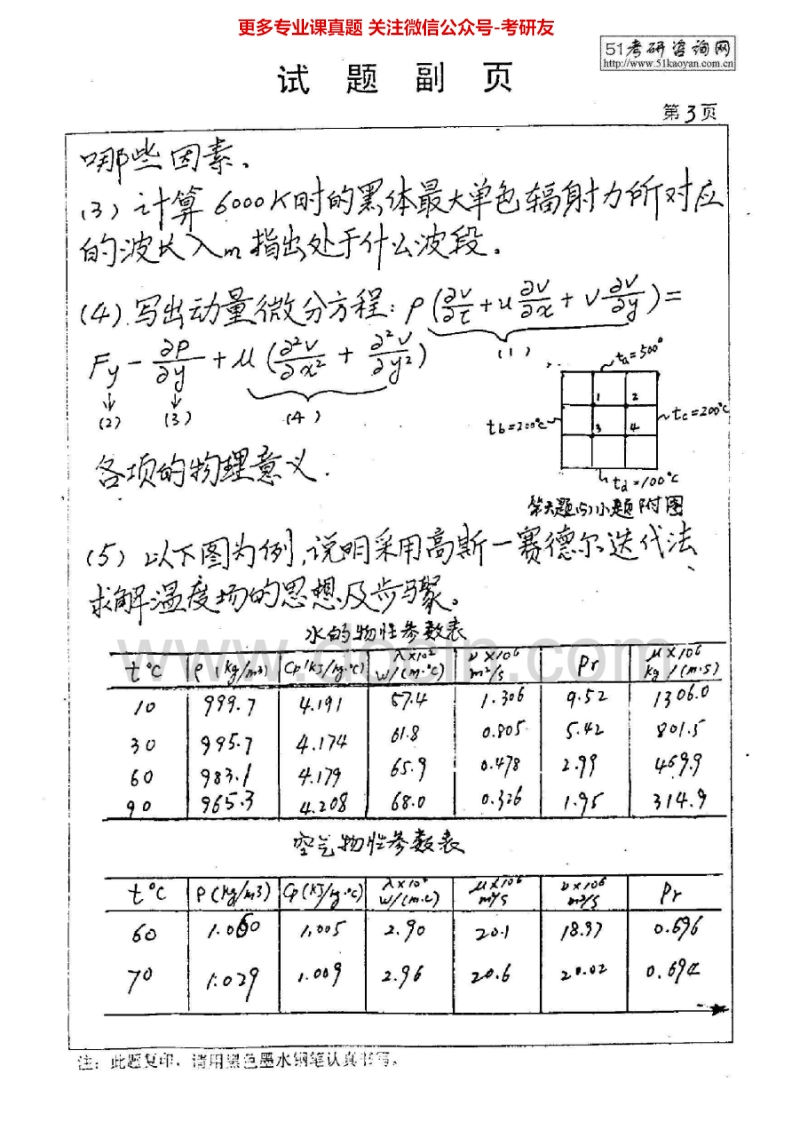 更多专业课真题 关注微信公众号-考研友
51考研咨询网
http://www.51kaoyan.com.cn
试 题 副 页
第3页
哪些因素.
(3) 计算6000K时的黑体最大单色辐射力所对应
的波长λm 指出处于什么波段.
(4). 写出动量微分方程: ρ(∂v/∂τ + u ∂v/∂x + v ∂v/∂y) =
(1)
Fy - ∂P/∂y + μ(∂²v/∂x² + ∂²v/∂y²)
(2) (3) (4)
ta=500°
1 2
tb=200°c tc=200°c
3 4
td=100°c
各项的物理意义.
第六题(5)小题附图
(5) 以下图为例,说明采用高斯—赛德尔迭代法
求解温度场的思想及步骤。
www.docin.com
水的物性参数表
t°C ρ(kg/m3) Cp(kJ/kg·°c) λ×10² w/(m·°C) ν×10⁶ m²/s Pr μ×10⁶ kg/(m·s)
10 999.7 4.191 57.4 1.306 9.52 1306.0
30 995.7 4.174 61.8 0.805 5.42 801.5
60 983.1 4.179 65.9 0.478 2.99 469.9
90 965.3 4.208 68.0 0.326 1.95 314.9
空气物性参数表
t°C ρ(kg/m3) Cp(kJ/kg·°c) λ×10² w/(m·c) μ×10⁶ m²/s ν×10⁶ m²/s Pr
60 1.060 1,005 2.90 20.1 18.97 0.696
70 1.029 1.009 2.96 20.6 20.02 0.694
注: 此题复印,请用黑色墨水钢笔认真书写。